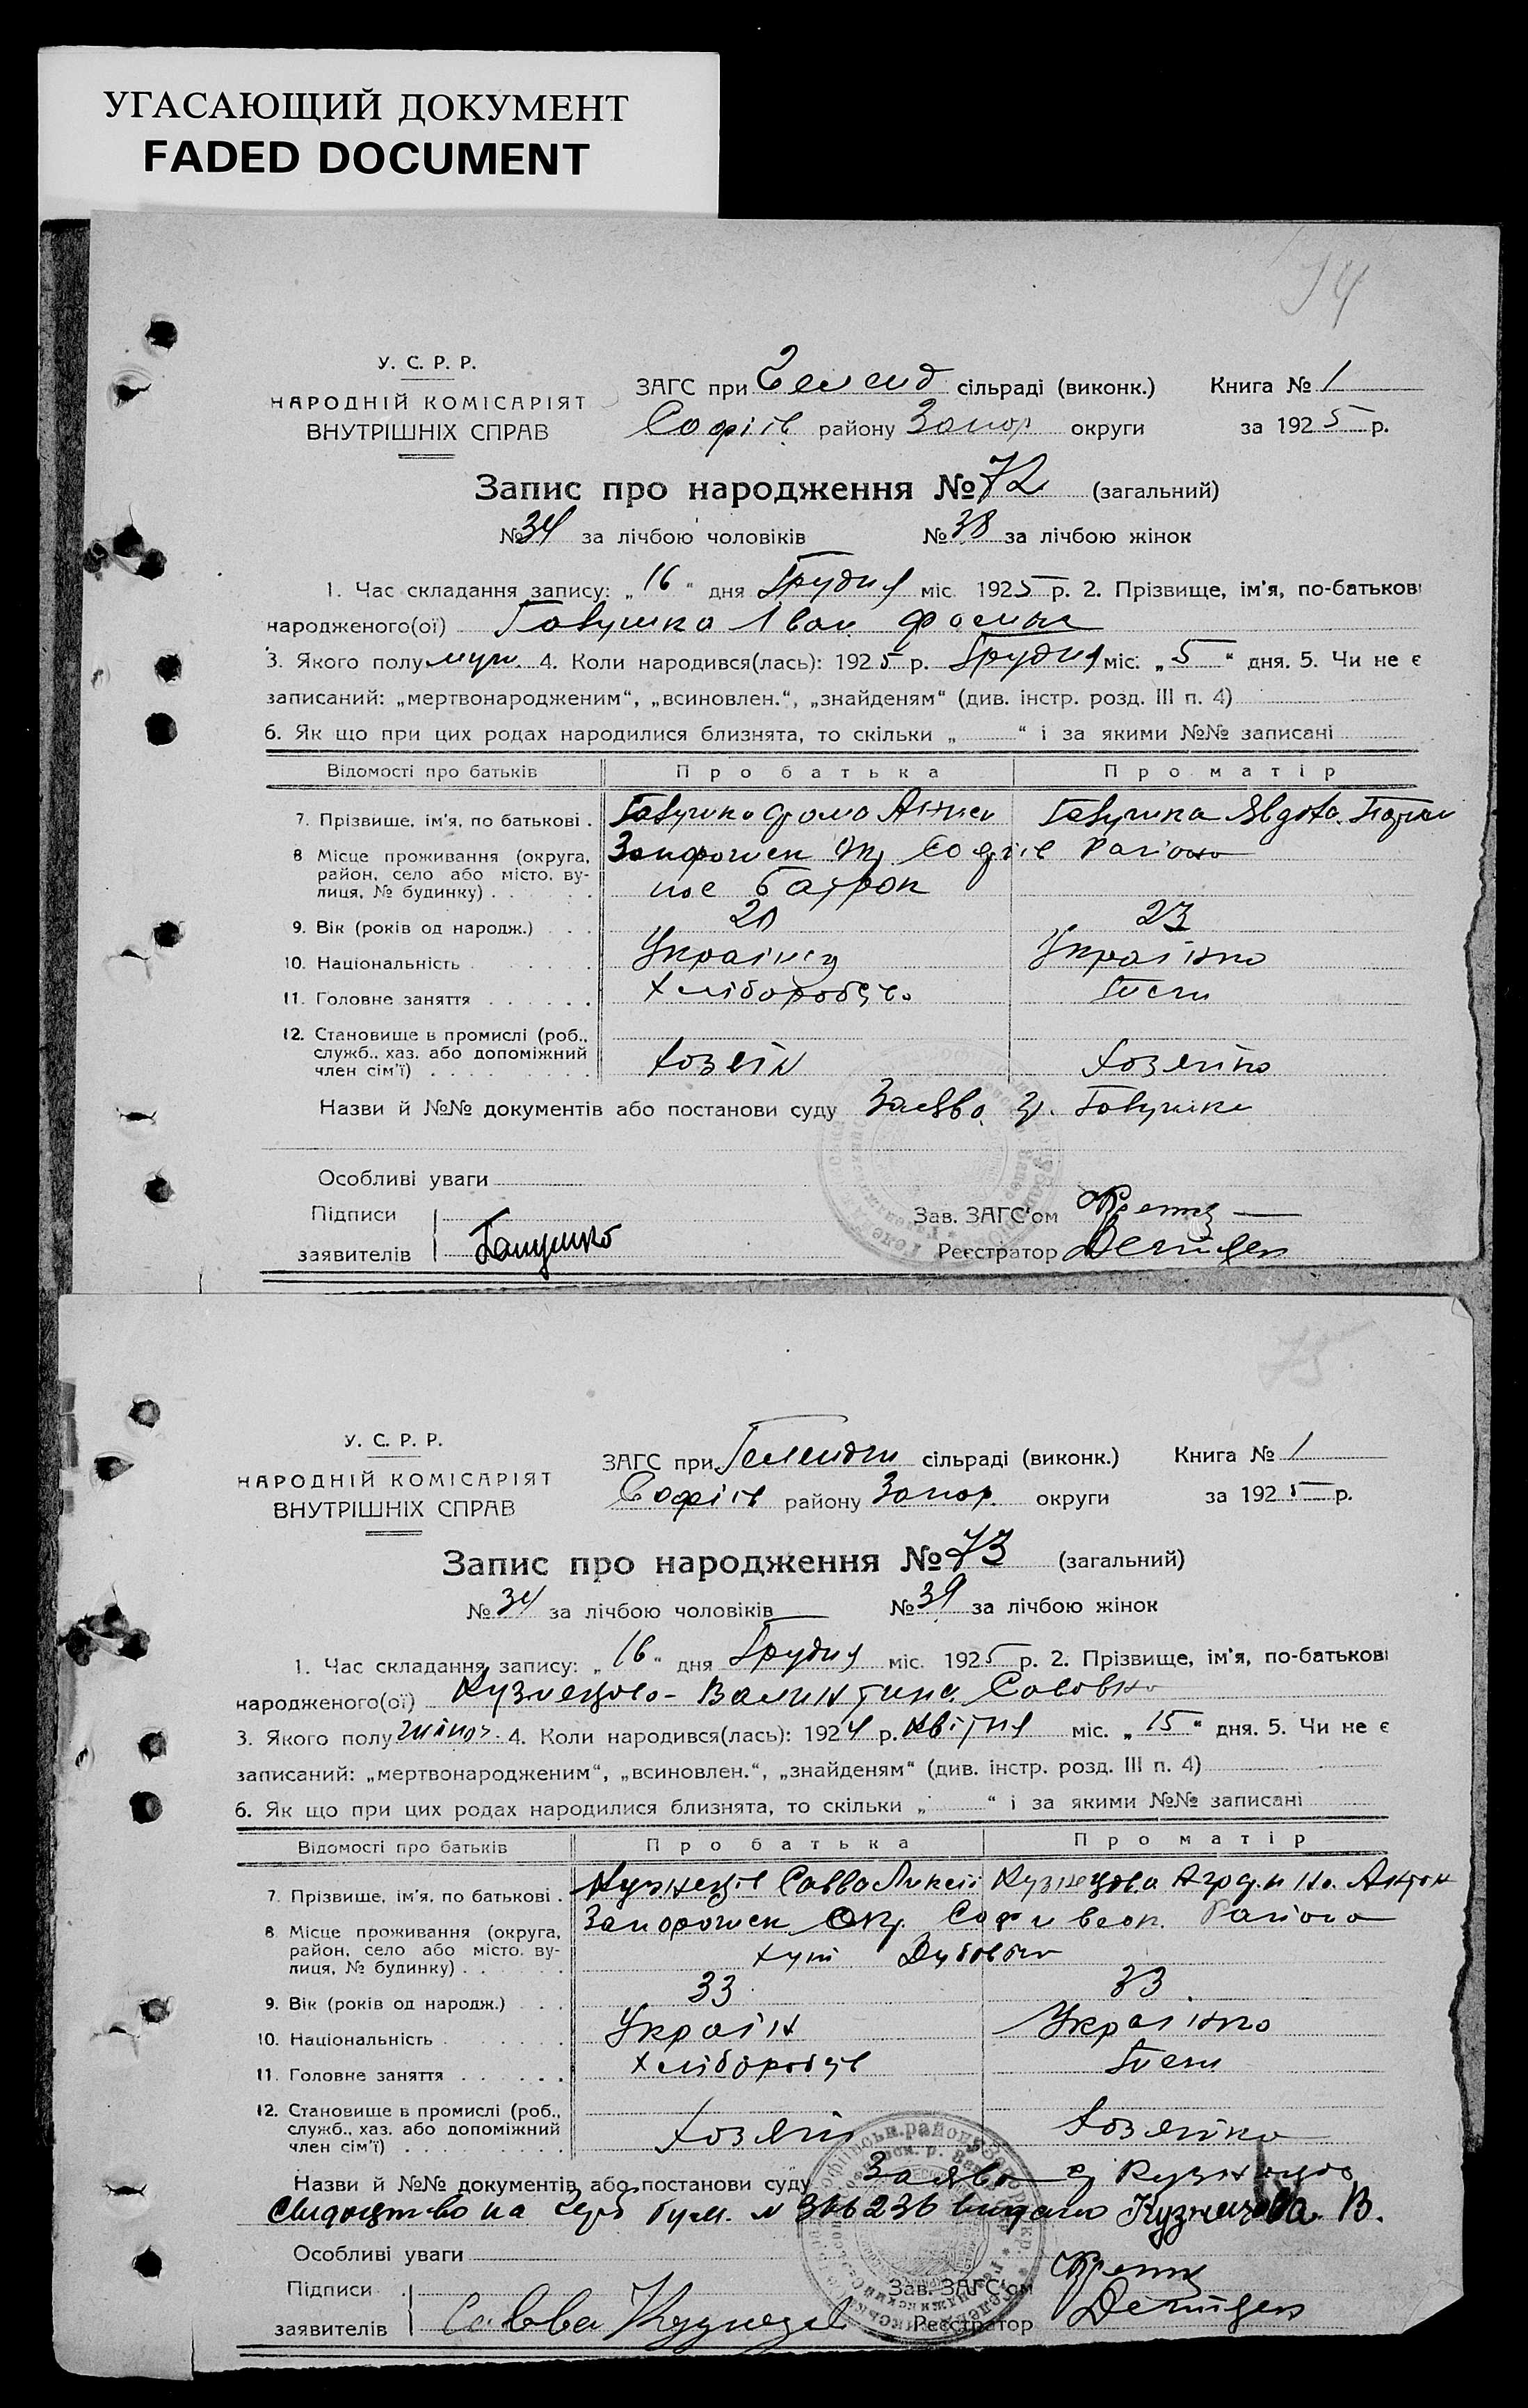 УГАСАЮЩИЙ ДОКУМЕНТ
FADED DOCUMENT
74
У. С. Р. Р.
НАРОДНІЙ КОМІСАРІЯТ
ВНУТРІШНІХ СПРАВ
ЗАГС при Геленд сільраді (виконк.) Книга № 1
Софіїв району Запор округи за 1925 р.
Запис про народження № 72 (загальний)
№ 34 за лічбою чоловіків № 38 за лічбою жінок
1. Час складання запису: „16“ дня Грудня міс. 1925 р. 2. Прізвище, ім'я, по-батькові
народженого(ої) Галушка Іван Фомич
3. Якого полу муж. 4. Коли народився(лась): 1925 р. Грудня міс. „5“ дня. 5. Чи не є
записаний: „мертвонародженим“, „всиновлен.“, „знайденям“ (див. інстр. розд. III п. 4)
6. Як що при цих родах народилися близнята, то скільки „ “ і за якими №№ записані
Відомості про батьків Про батька Про матір
7. Прізвище, ім'я, по батькові . Галушка Фома Галушка Явдоха
8 Місце проживання (округа, район, село або місто, вулиця, № будинку) . Запорожск Окр Софіїв Району
пос Батрак
9. Вік (років од народж.) 20 23
10. Національність Українец Українка
11. Головне заняття Хліборобство
12. Становище в промислі (роб., служб., хаз. або допоміжний член сім'ї) Хозяін Хозяйка
Назви й №№ документів або постанови суду Заява гр. Галушки
Особливі уваги
Підписи Зав. ЗАГС'ом
заявителів Галушко Реєстратор
75
У. С. Р. Р.
НАРОДНІЙ КОМІСАРІЯТ
ВНУТРІШНІХ СПРАВ
ЗАГС при Гелендж сільраді (виконк.) Книга № 1
Софіїв району Запор. округи за 1925 р.
Запис про народження № 73 (загальний)
№ 34 за лічбою чоловіків № 39 за лічбою жінок
1. Час складання запису: „16“ дня Грудня міс. 1925 р. 2. Прізвище, ім'я, по-батькові
народженого(ої) Кузнецова Валинтина Савовна
3. Якого полу жіноч. 4. Коли народився(лась): 1924 р. Квітня міс. „15“ дня. 5. Чи не є
записаний: „мертвонародженим“, „всиновлен.“, „знайденям“ (див. інстр. розд. III п. 4)
6. Як що при цих родах народилися близнята, то скільки „ “ і за якими №№ записані
Відомості про батьків Про батька Про матір
7. Прізвище, ім'я, по батькові . Кузнеців Савва Ликсій Кузнецова Антон
8 Місце проживання (округа, район, село або місто, вулиця, № будинку) . Запорожск Окр. Софиевск. Района
хут
9. Вік (років од народж.) 33 33
10. Національність Україн Українка
11. Головне заняття Хліборобств
12. Становище в промислі (роб., служб., хаз. або допоміжний член сім'ї) Хозяін Хозяйка
Назви й №№ документів або постанови суду Заява гр Кузнецова
Свидоцтво на герб бум. № 366236 видано Кузнецова В.
Особливі уваги
Підписи Зав. ЗАГС'ом
заявителів Савва Кузнецов Реєстратор